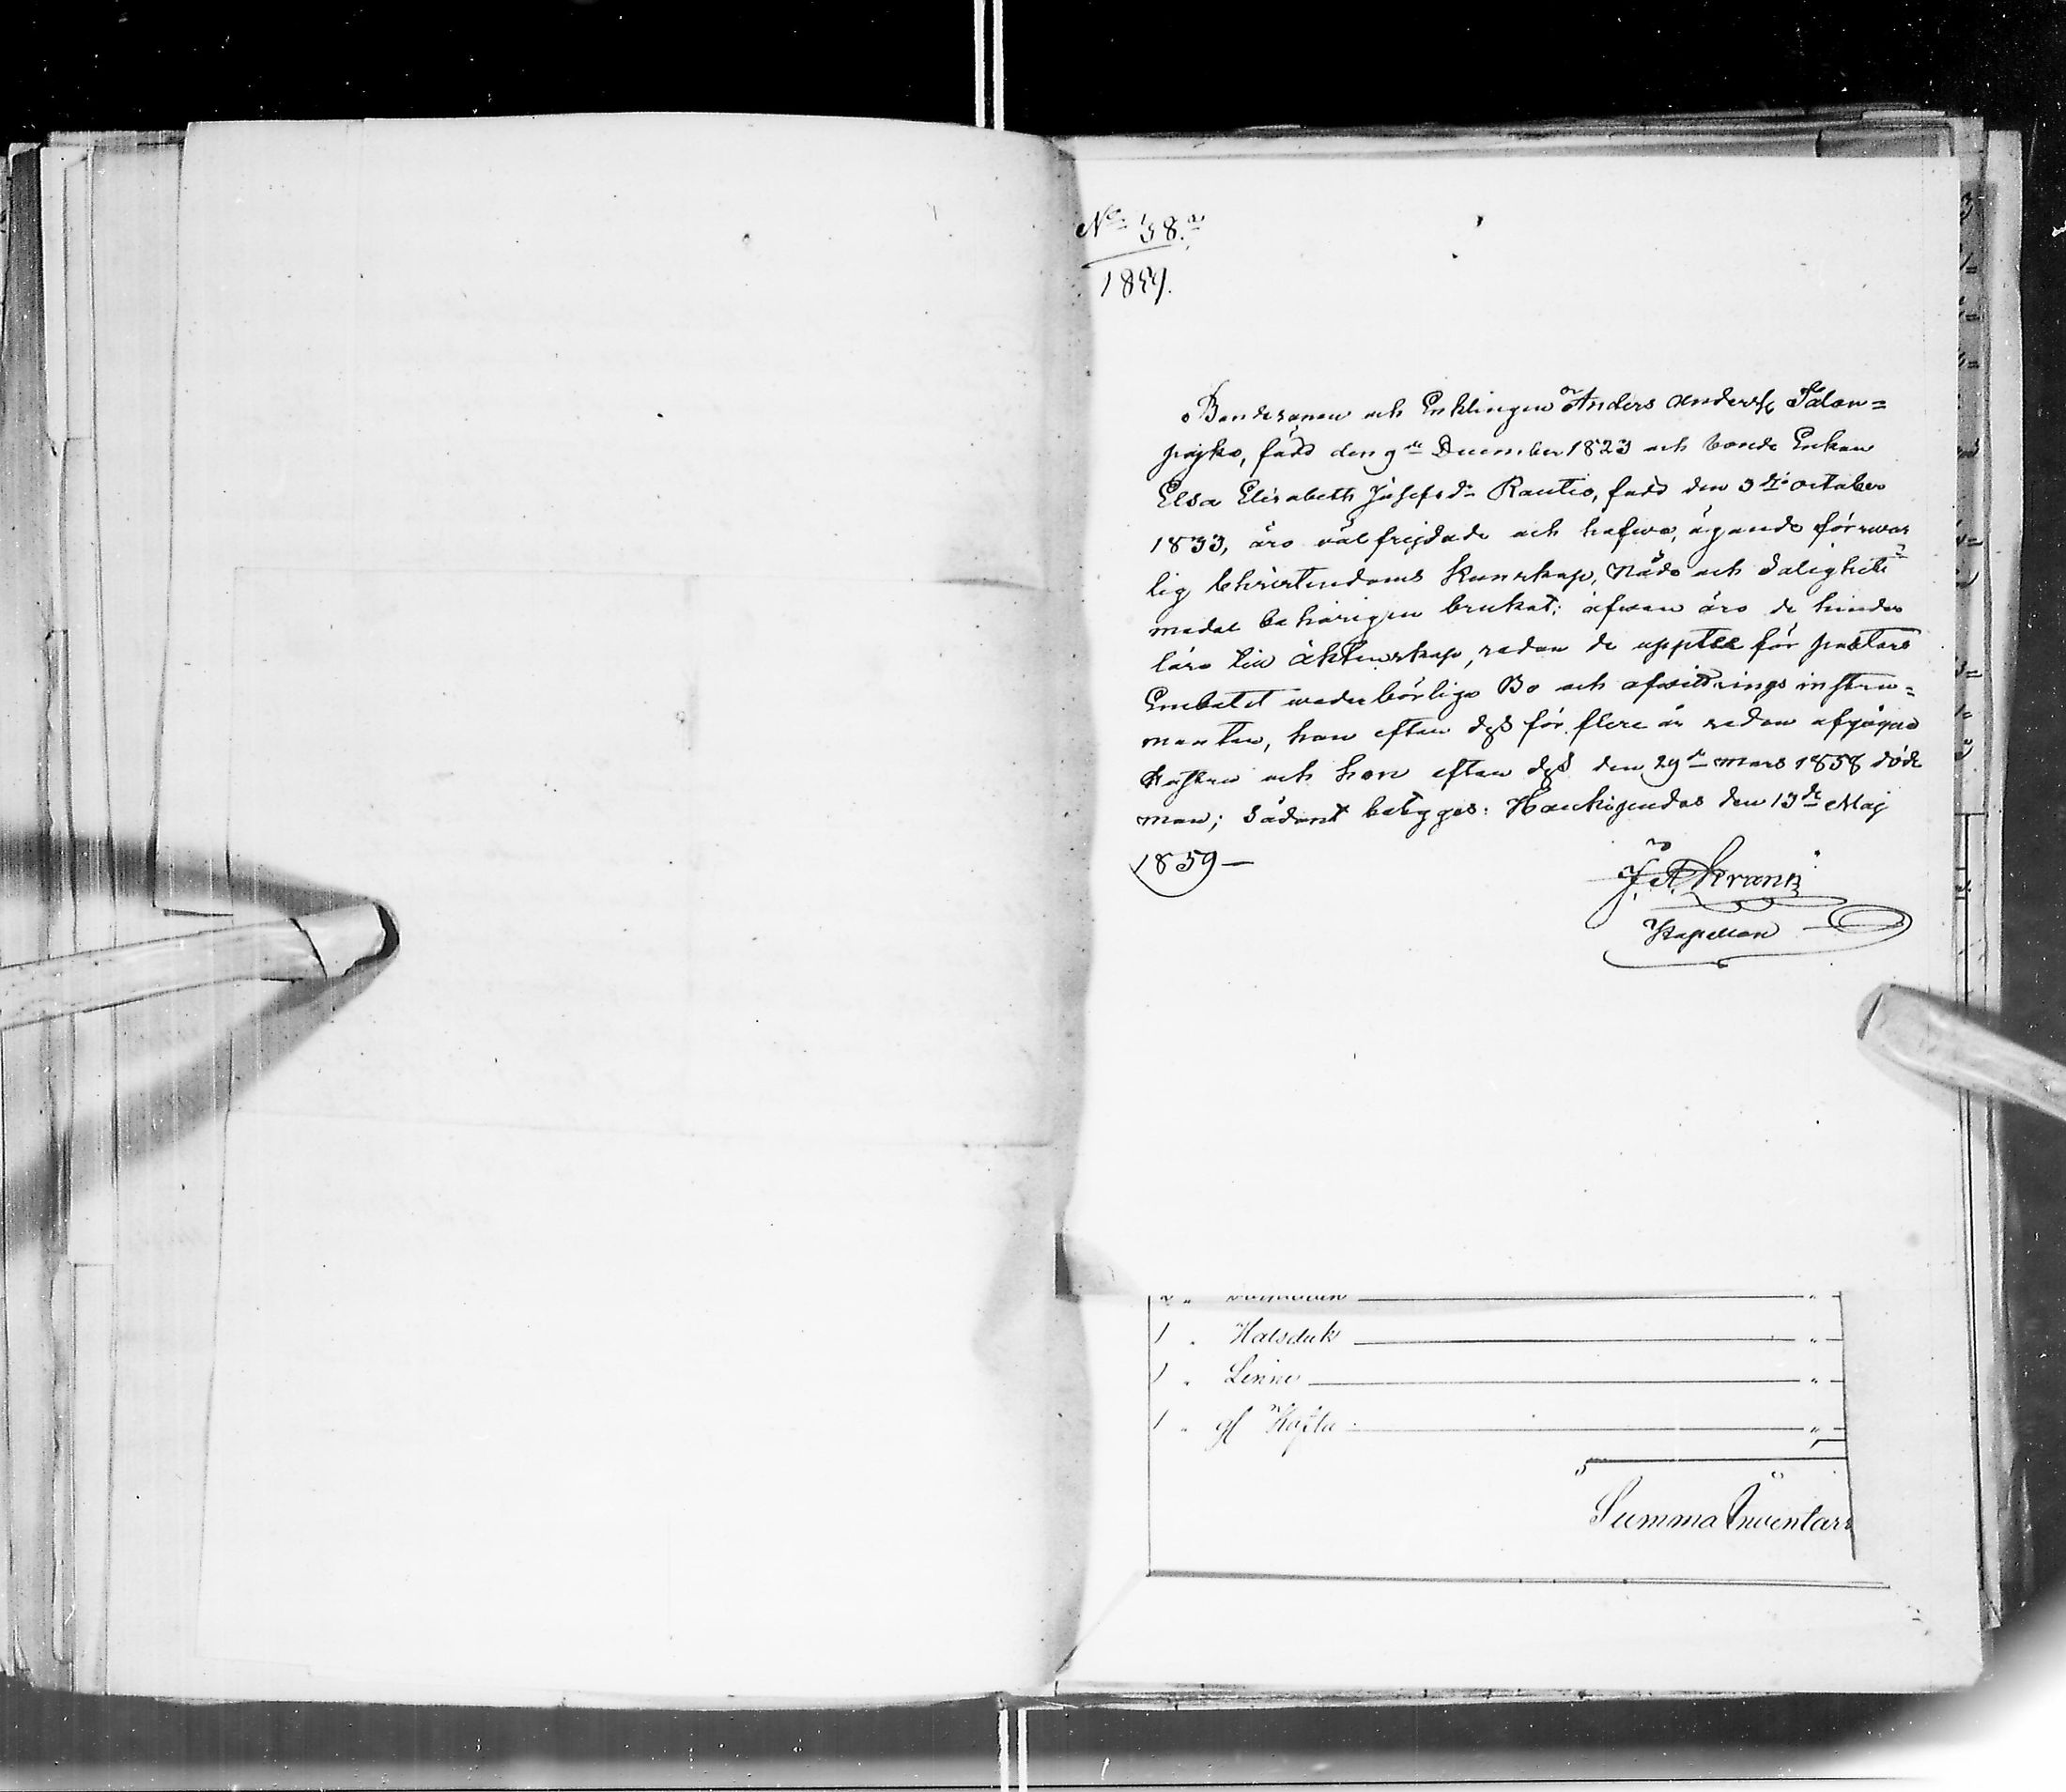 No 38.a
1859.
Bondesonen och Enklingen Anders Anderss. Talan=
pojka, född den 9de December 1823 och bonde Enkan
Elsa Elisabeth Josefsdr Rautio, född den 3dje October
1833, äro välfrejdade och hafwa, ägande förswar
lig Christendoms Kunskap, Nåde och Salighets
medel behörigen brukat; äfwen äro de hinders
löse till äktenskap, sedan de uppteet för pastors
Embetet wederbörliga Bo och afwittrings instru=
menter, han efter dess för flere år sedan afgågne
hustru och hon efter dess den 29de Mars 1858 döde
man; Sådant betygges: Haukigundas den 13de Maj
1859 —
J. A. Krank
Kapellan
1 " Halsduk "
1 " Linne "
1 " gl Kofta "
Summa Inventari